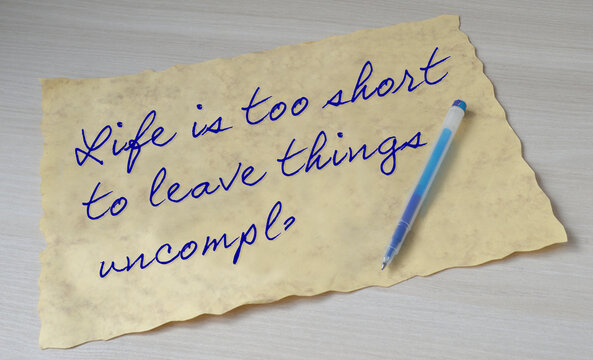 Life is too short
to leave things
uncompl